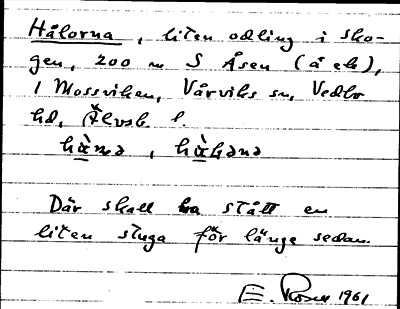 Hålorna, liten odling i sko-
gen, 200 m S Åsen (å ek),
i Mossvikan, Vårviks sn, Vedbo
hd, Älvsb. l.
Där skall ha stått en
liten stuga för länge sedan.
E. 1961